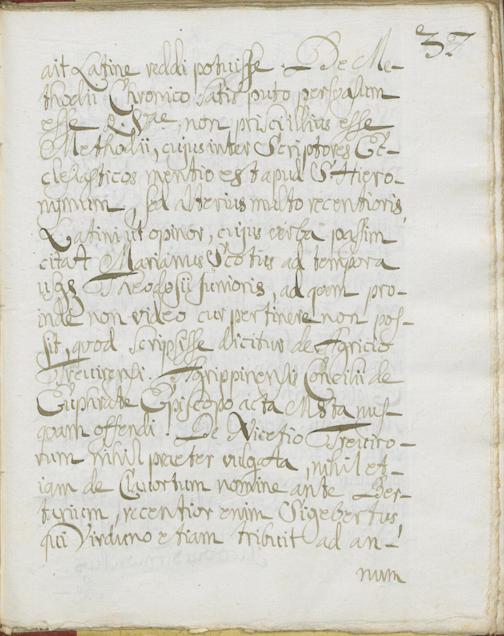 37
ait Latine reddi potuisse. De Me-
thodii Chronico satis puto persuasum
esse R. Vae, non priscillius esse
Methodii, cujus inter Scriptores Ec-
clesiasticos mentio est apud S. Hiero-
nymum, sed alterius multo recentioris,
Latini ut opinor, cujus verba passim
citat Marianus Scotus ad tempora
usq; Theodosii junioris, ad quem pro-
inde non video cur pertinere non pos-
sit, quod scripsisse dicitur de Agricio
Trevirensi. Agrippinensis Concilii de
Euphrate Episcopo acta Msta nus-
quam offendi. De Nicetio Trevirо-
rum nihil praeter vulgata, nihil et-
iam de nomine ante Ber-
tarium, recentior enim Sigebertus,
qui Virduno etiam tribuit ad an-
num